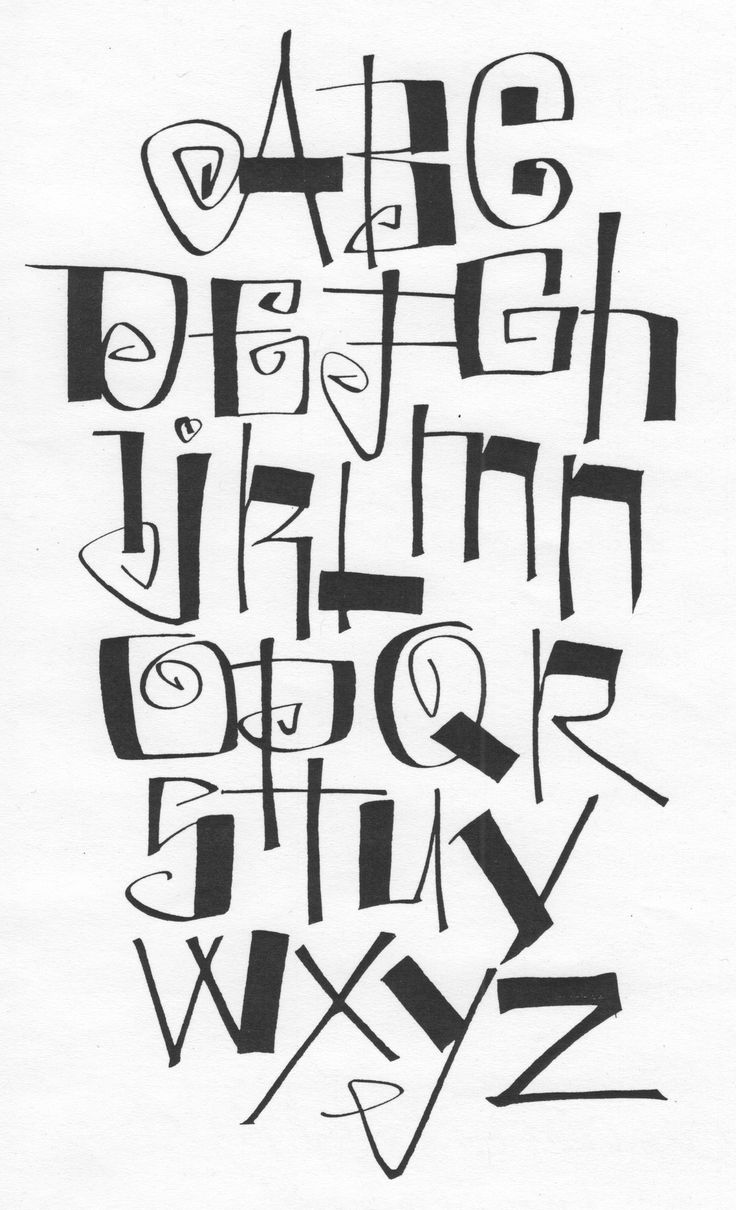 ABC
DEFGh
IjKLmn
OPQR
STUV
WXyZ